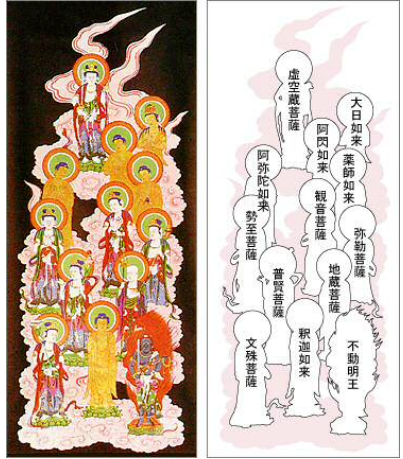 虚空蔵菩薩
大日如来
阿閃如来
阿弥陀如来
薬師如来
観音菩薩
勢至菩薩
弥勒菩薩
地蔵菩薩
普賢菩薩
文殊菩薩
釈迦如来
不動明王